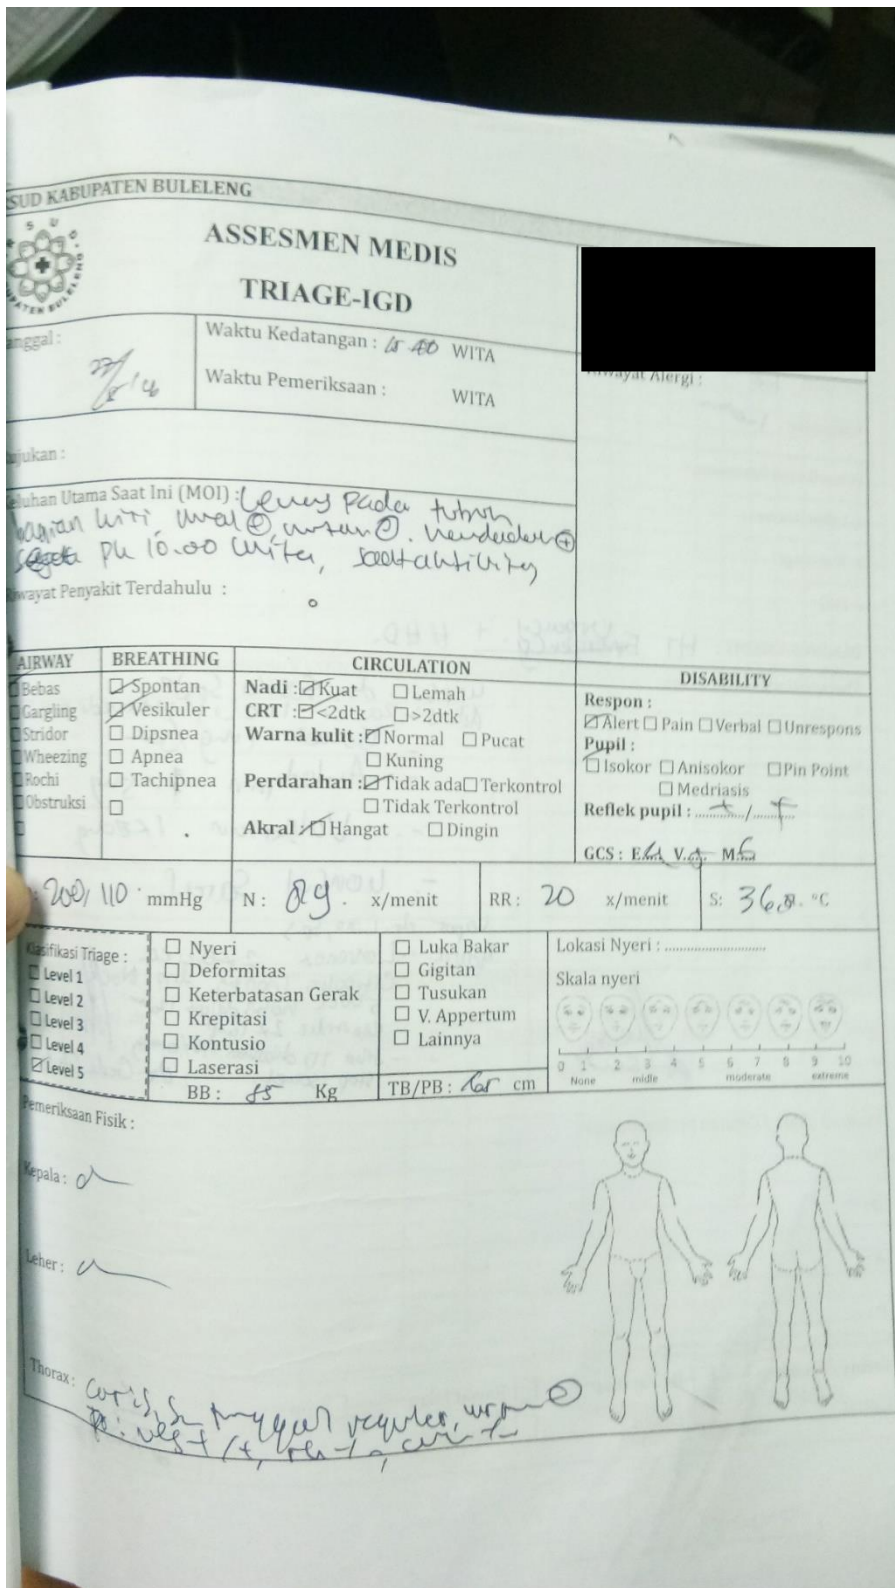 SUD KABUPATEN BULELENG
ASSESMEN MEDIS
TRIAGE-IGD
anggal :
Waktu Kedatangan : WITA
Waktu Pemeriksaan : WITA
wayat Alergi :
ujukan :
eluhan Utama Saat Ini (MOI) : Lemas pada tubuh
bagian kiri, mual ⊕, mendadak ⊕
10.00 wita, saat aktivitas
wayat Penyakit Terdahulu :
AIRWAY BREATHING CIRCULATION DISABILITY
Bebas
Gargling
Stridor
Wheezing
Rochi
Obstruksi
Spontan
Vesikuler
Dipsnea
Apnea
Tachipnea
Nadi : Kuat Lemah
CRT : <2dtk >2dtk
Warna kulit : Normal Pucat
Kuning
Perdarahan : Tidak ada Terkontrol
Tidak Terkontrol
Akral : Hangat Dingin
Respon :
Alert Pain Verbal Unrespons
Pupil :
Isokor Anisokor Pin Point
Medriasis
Reflek pupil : + / +
GCS : E4 V5 M6
: 200/110 mmHg N : 89 x/menit RR : 20 x/menit S: 36,8 °C
Klasifikasi Triage :
Level 1
Level 2
Level 3
Level 4
Level 5
Nyeri
Deformitas
Keterbatasan Gerak
Krepitasi
Kontusio
Laserasi
Luka Bakar
Gigitan
Tusukan
V. Appertum
Lainnya
Lokasi Nyeri :
Skala nyeri
0 1 2 3 4 5 6 7 8 9 10
None midle moderate extreme
BB : 85 Kg TB/PB : cm
Pemeriksaan Fisik :
Kepala :
Leher :
Thorax : reguler,